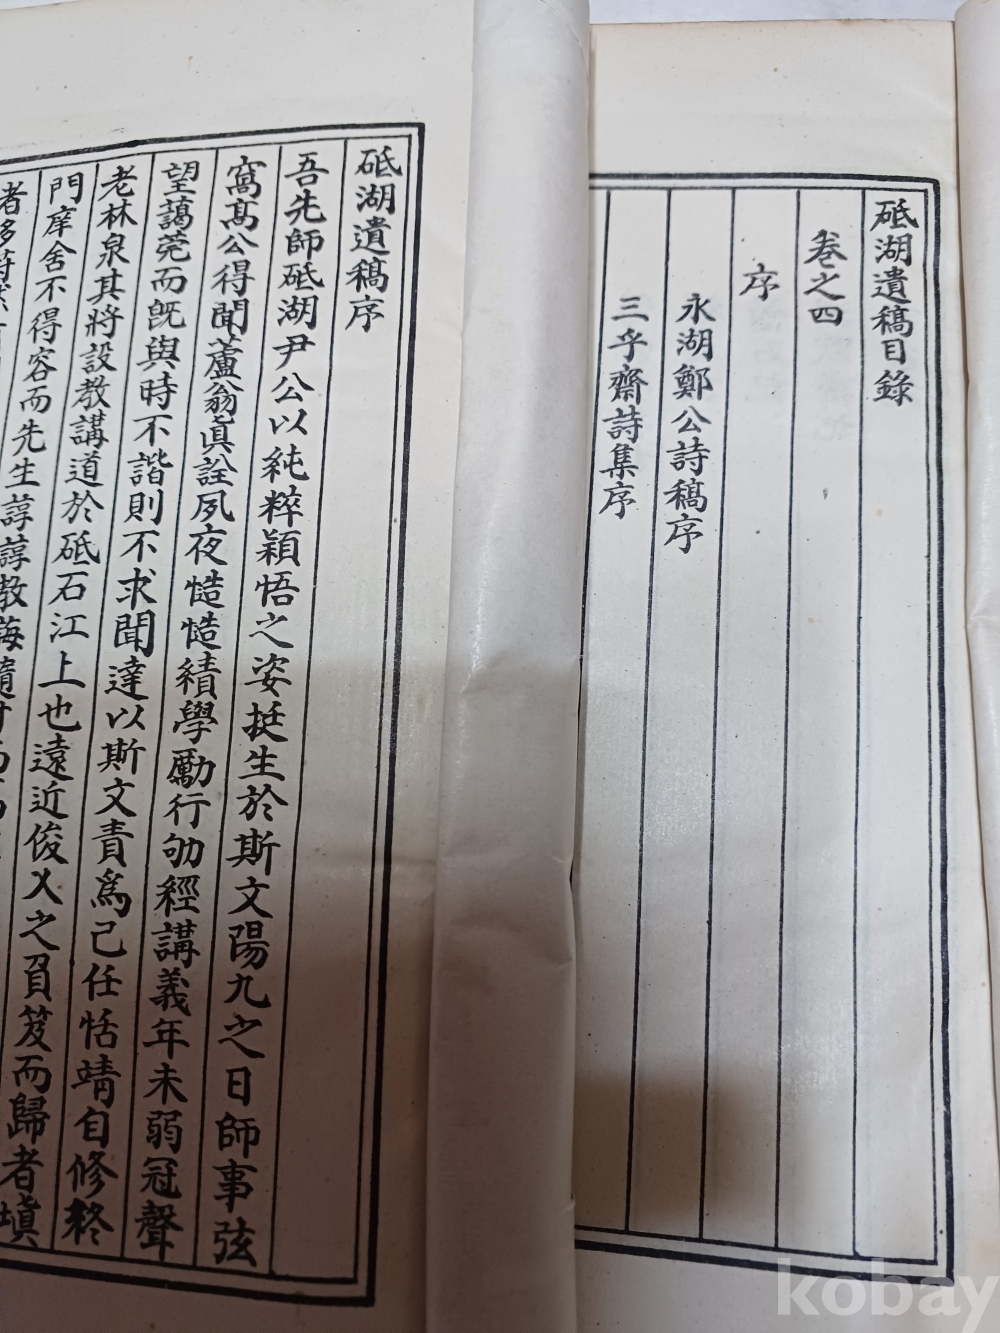 砥湖遺稿目錄
卷之四
序
永湖鄭公詩稿序
三乎齋詩集序
砥湖遺稿序
吾先師砥湖尹公以純粹穎悟之姿挺生於斯文陽九之日師事弦
窩高公得聞蘆翁眞詮夙夜慥慥績學勵行劬經講義年未弱冠聲
望藹莞而旣與時不諧則不求聞達以斯文責爲己任恬靖自修終
老林泉其將設敎講道於砥石江上也遠近俊乂之負笈而歸者塡
門庠舍不得容而先生諄諄敎誨隨
kobay